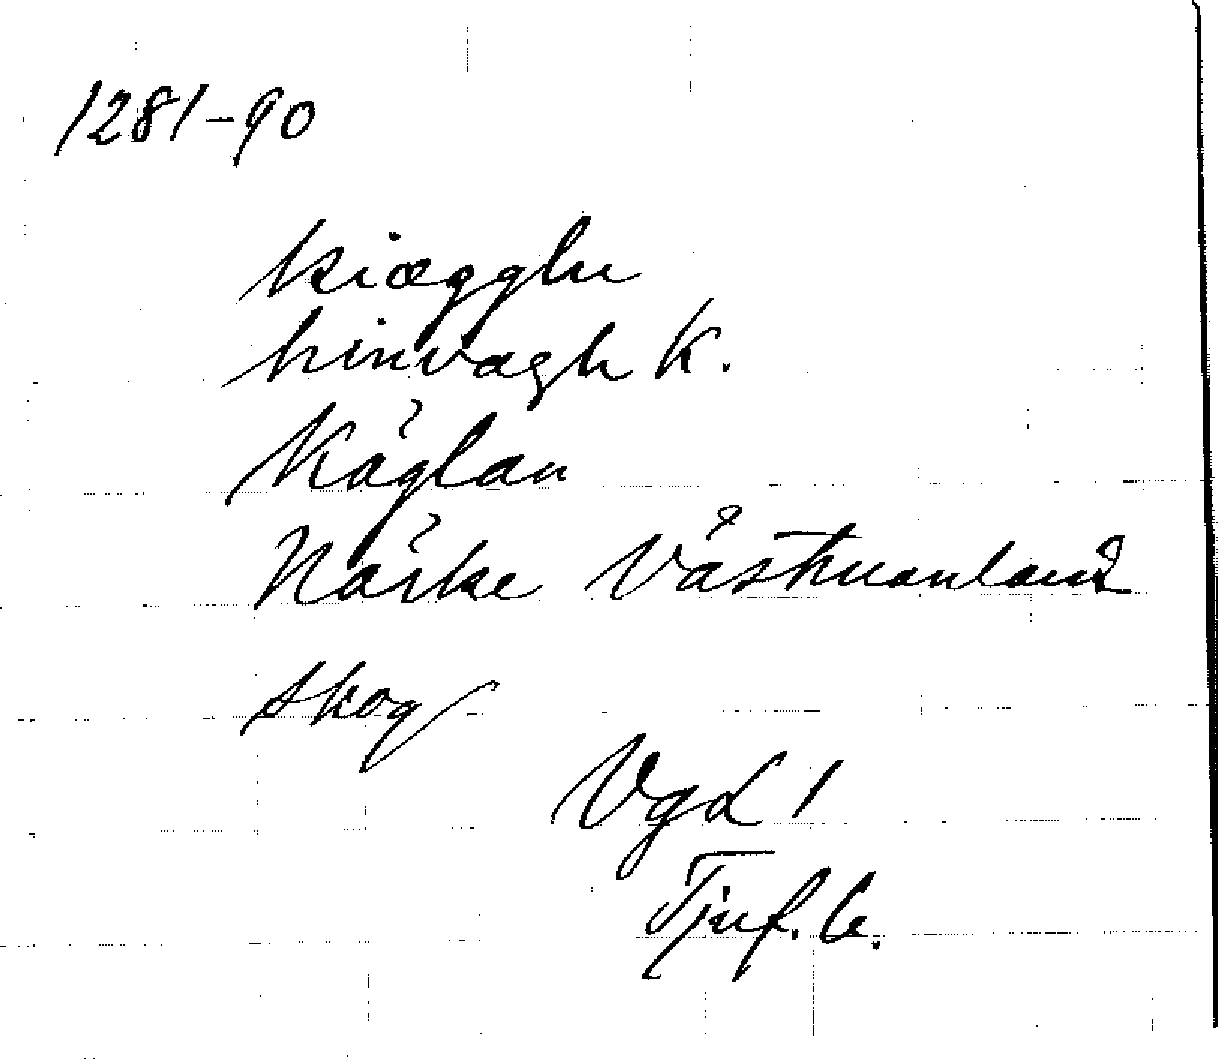 1281-90
kiægglu
hinvagh K.
Käglan
Närke Västmanland
skog
VgL 1
Tjuf. b.